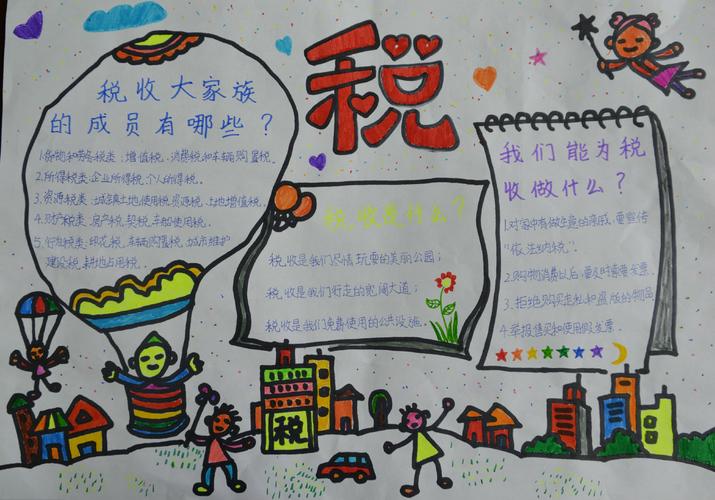 税
税收大家族
的成员有哪些？
1.货物和劳务税类：增值税、消费税和车辆购置税。
2.所得税类：企业所得税、个人所得税。
3.资源税类：城镇土地使用税、资源税、土地增值税。
4.财产税类：房产税、契税、车船使用税。
5.行为税类：印花税、车辆购置税、城市维护
建设税、耕地占用税。
税收是什么？
税收是我们尽情玩耍的美丽公园；
税收是我们行走的宽阔大道；
税收是我们免费使用的公共设施。
我们能为税
收做什么？
1.对家中有做生意的亲戚，要宣传
“依法纳税”。
2.购物消费以后，要及时索要发票。
3.拒绝购买走私和盗版的物品
4.举报售买和使用假发票.
税